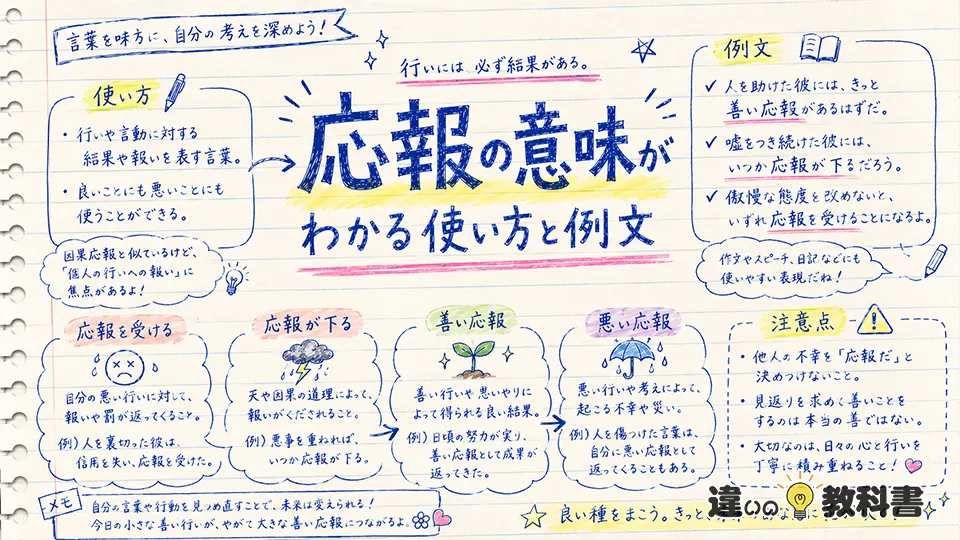 言葉を味方に、自分の考えを深めよう!
行いには 必ず結果がある。
応報の意味が
わかる使い方と例文
使い方
・行いや言動に対する
結果や報いを表す言葉。
・良いことにも悪いことにも
使うことができる。
因果応報と似ているけど、
「個人の行いへの報い」に
焦点があるよ!
例文
✓ 人を助けた彼には、きっと
善い応報があるはずだ。
✓ 嘘をつき続けた彼には、
いつか応報が下るだろう。
✓ 傲慢な態度を改めないと、
いずれ応報を受けることになるよ。
作文やスピーチ、日記などにも
使いやすい表現だね!
応報を受ける
自分の悪い行いに対して、
報いや罰が返ってくること。
例)人を裏切った彼は、
信用を失い、応報を受けた。
応報が下る
天や因果の道理によって、
報いがくだされること。
例)悪事を重ねれば、
いつか応報が下る。
善い応報
善い行いや思いやりに
よって得られる良い結果。
例)日頃の努力が実り、
善い応報として成果が
返ってきた。
悪い応報
悪い行いや考えによって、
起こる不幸や災い。
例)人を傷つけた言葉は、
自分に悪い応報として
返ってくることもある。
注意点
・他人の不幸を「応報だ」と
決めつけないこと。
・見返りを求め善いことを
するのは本当の善ではない。
・大切なのは、日々の心と行いを
丁寧に積み重ねること!
メモ
自分の言葉や行動を見つめ直すことで、未来は変えられる!
今日の小さな善い行いが、やがて大きな善い応報につながるよ。
良い種をまこう。きっと
違いの教科書